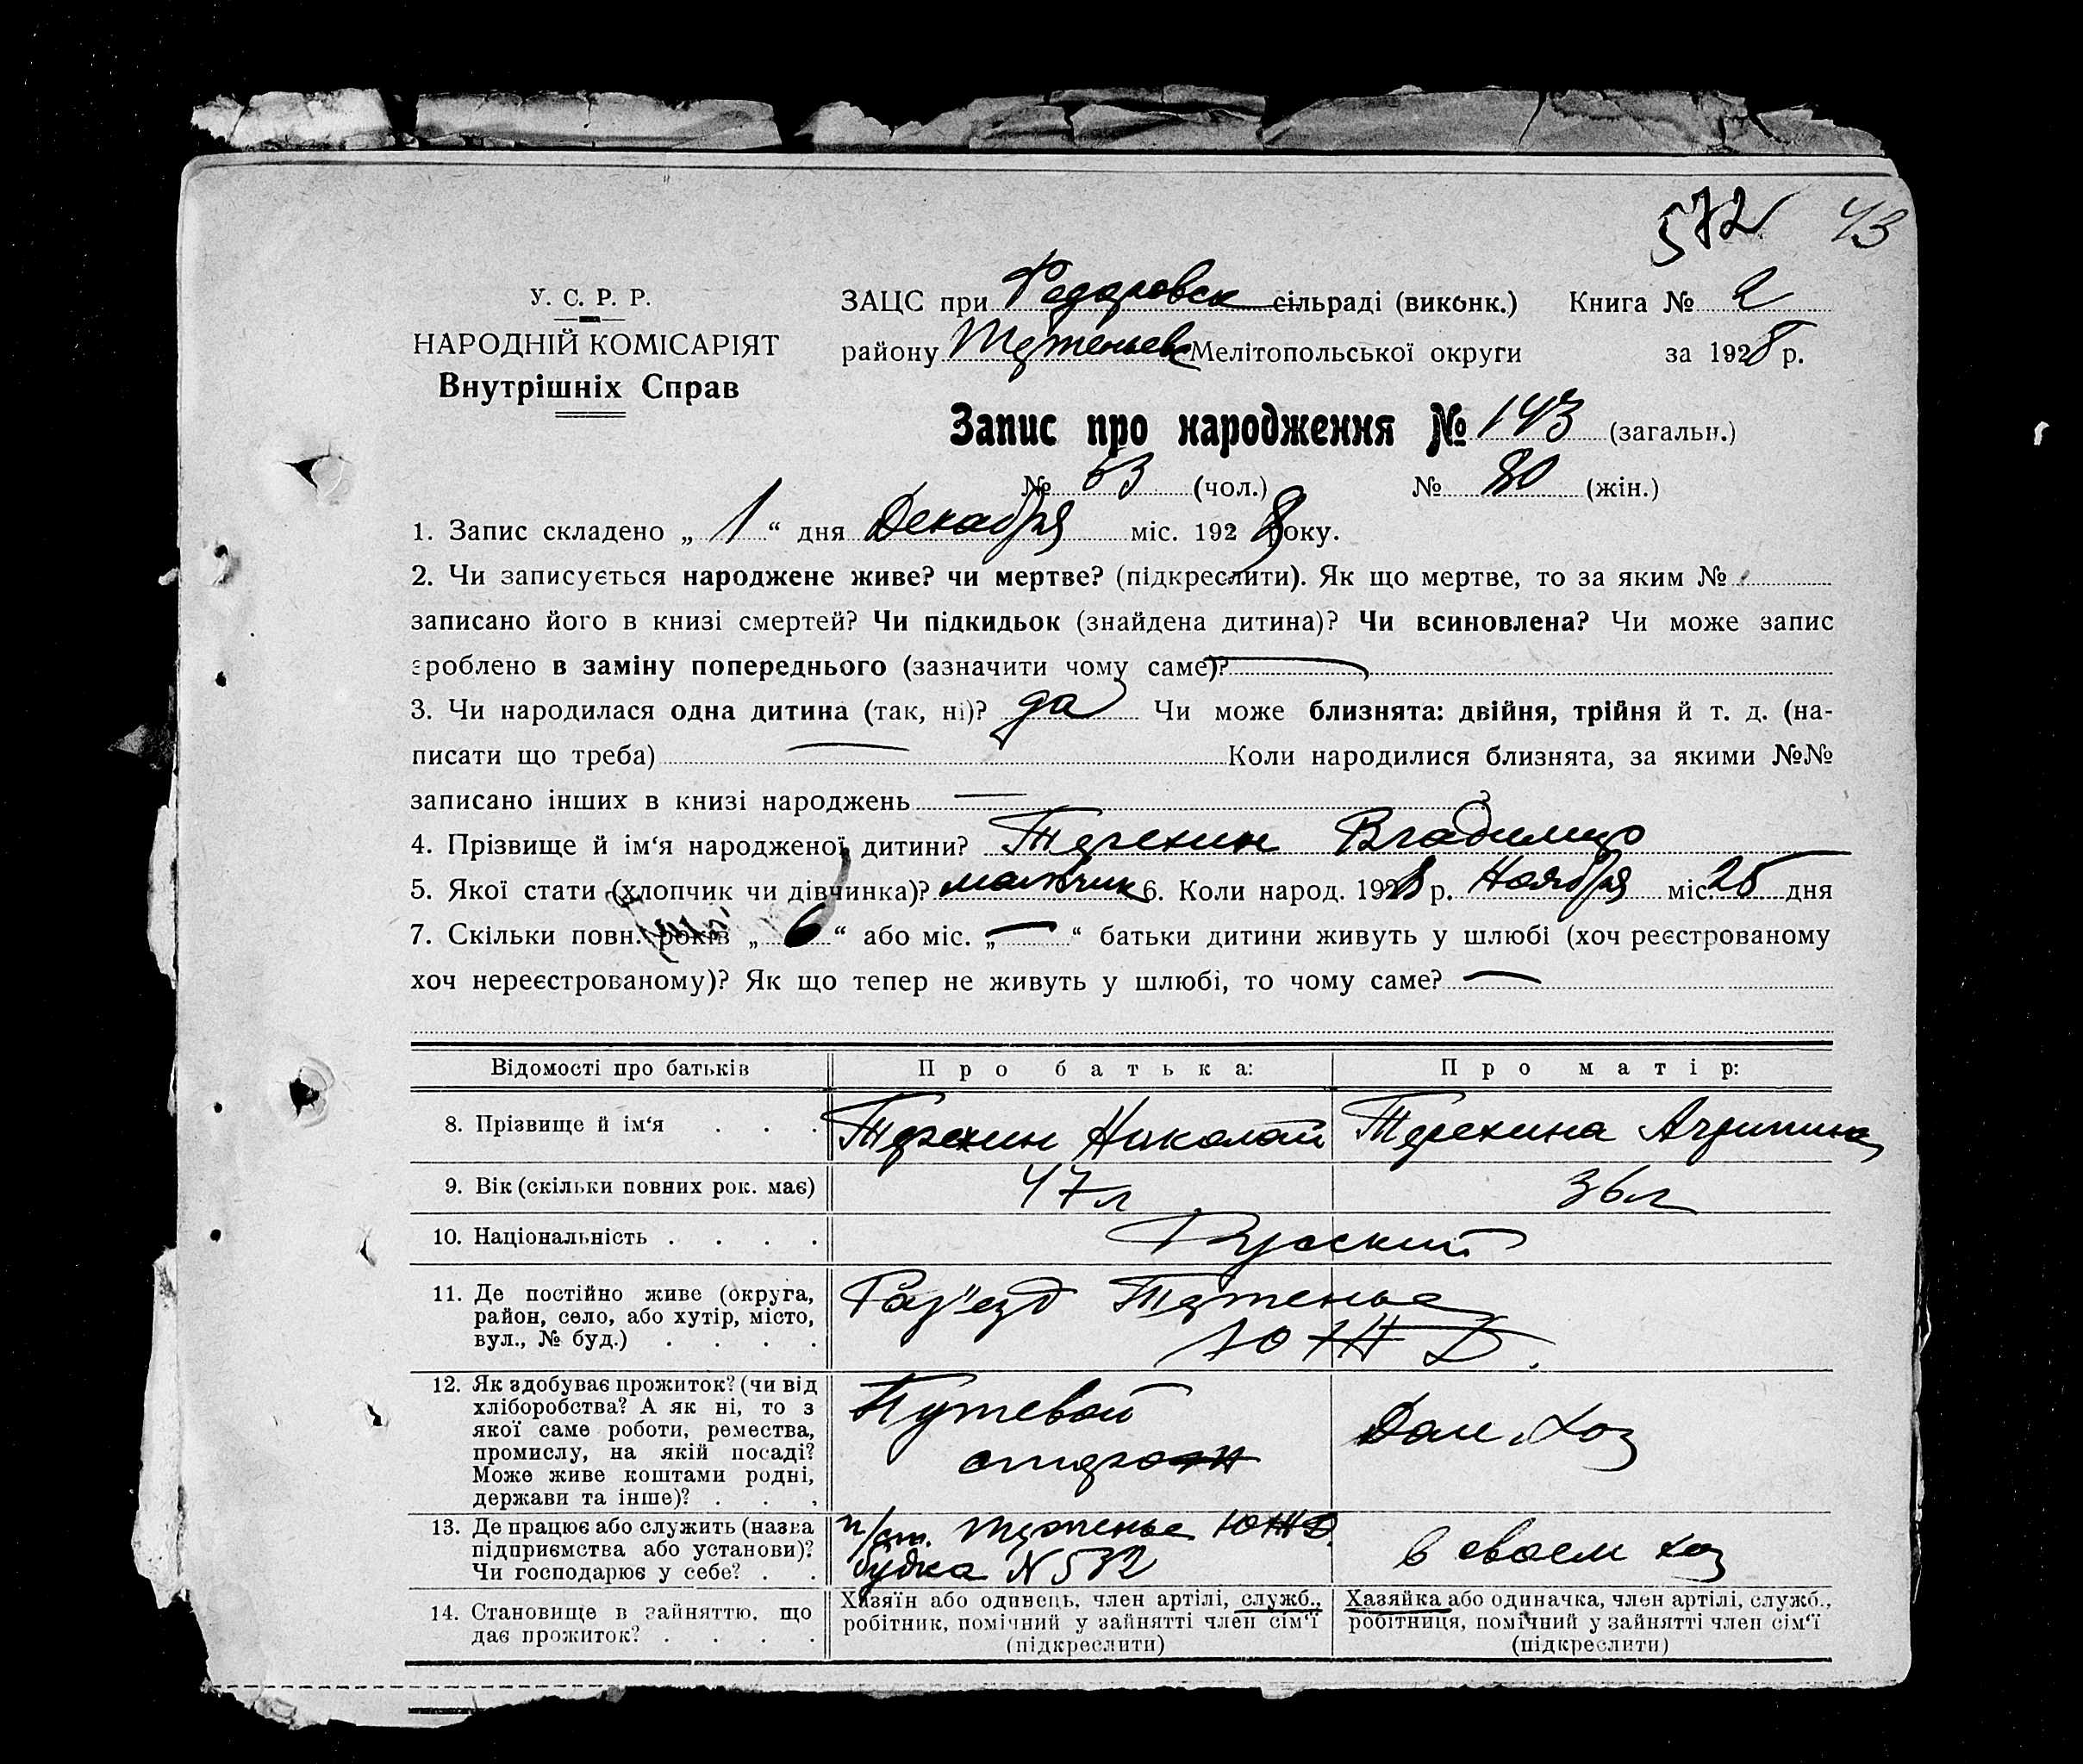 572 43
У. С. Р. Р.
НАРОДНІЙ КОМІСАРІЯТ
Внутрішніх Справ
ЗАЦС при Федоровск сільраді (виконк.) Книга № 2
району Мелітопольської округи за 1928 р.
Запис про народження № 143 (загальн.)
№ 63 (чол.) № 80 (жін.)
1. Запис складено „ 1 “ дня Декабря міс. 192 8 року.
2. Чи записується народжене живе? чи мертве? (підкреслити). Як що мертве, то за яким №
записано його в книзі смертей? Чи підкидьок (знайдена дитина)? Чи всиновлена? Чи може запис
зроблено в заміну попереднього (зазначити чому саме)? —
3. Чи народилася одна дитина (так, ні)? да Чи може близнята: двійня, трійня й т. д. (на-
писати що треба) — Коли народилися близнята, за якими №№
записано інших в книзі народжень — ?
4. Прізвище й ім‘я народженої дитини? Терехин Владимир
5. Якої стати (хлопчик чи дівчинка)? мальчик 6. Коли народ. 1928 р. Ноября міс. 25 дня
7. Скільки повн. років „ 6 “ або міс. „ — “ батьки дитини живуть у шлюбі (хоч реєстрованому
хоч нереєстрованому)? Як що тепер не живуть у шлюбі, то чому саме? —
Відомості про батьків Про батька: Про матір:
8. Прізвище й ім‘я . . . Терехин Николай Терехина Агрипина
9. Вік (скільки повних рок. має) 47 л 36 л
10. Національність . . . . Русский
11. Де постійно живе (округа,
район, село, або хутір, місто,
вул., № буд.) . . . .
Раз'езд
ЮЖД.
12. Як здобуває прожиток? (чи від
хліборобства? А як ні, то з
якої саме роботи, ремества,
промислу, на якій посаді?
Може живе коштами родні,
держави та інше)? . . .
Путевой
сторож
Дом. Хоз
13. Де працює або служить (назва
підприємства або установи)?
Чи господарює у себе? . .
п/ст. ЮЖД.
будка N 532
в своем хоз
14. Становище в зайняттю, що
дає прожиток? . . . .
Хазяїн або одинець, член артілі, служб.,
робітник, помічний у зайнятті член сім‘ї
(підкреслити)
Хазяйка або одиначка, член артілі, служб.,
робітниця, помічний у зайнятті член сім‘ї
(підкреслити)